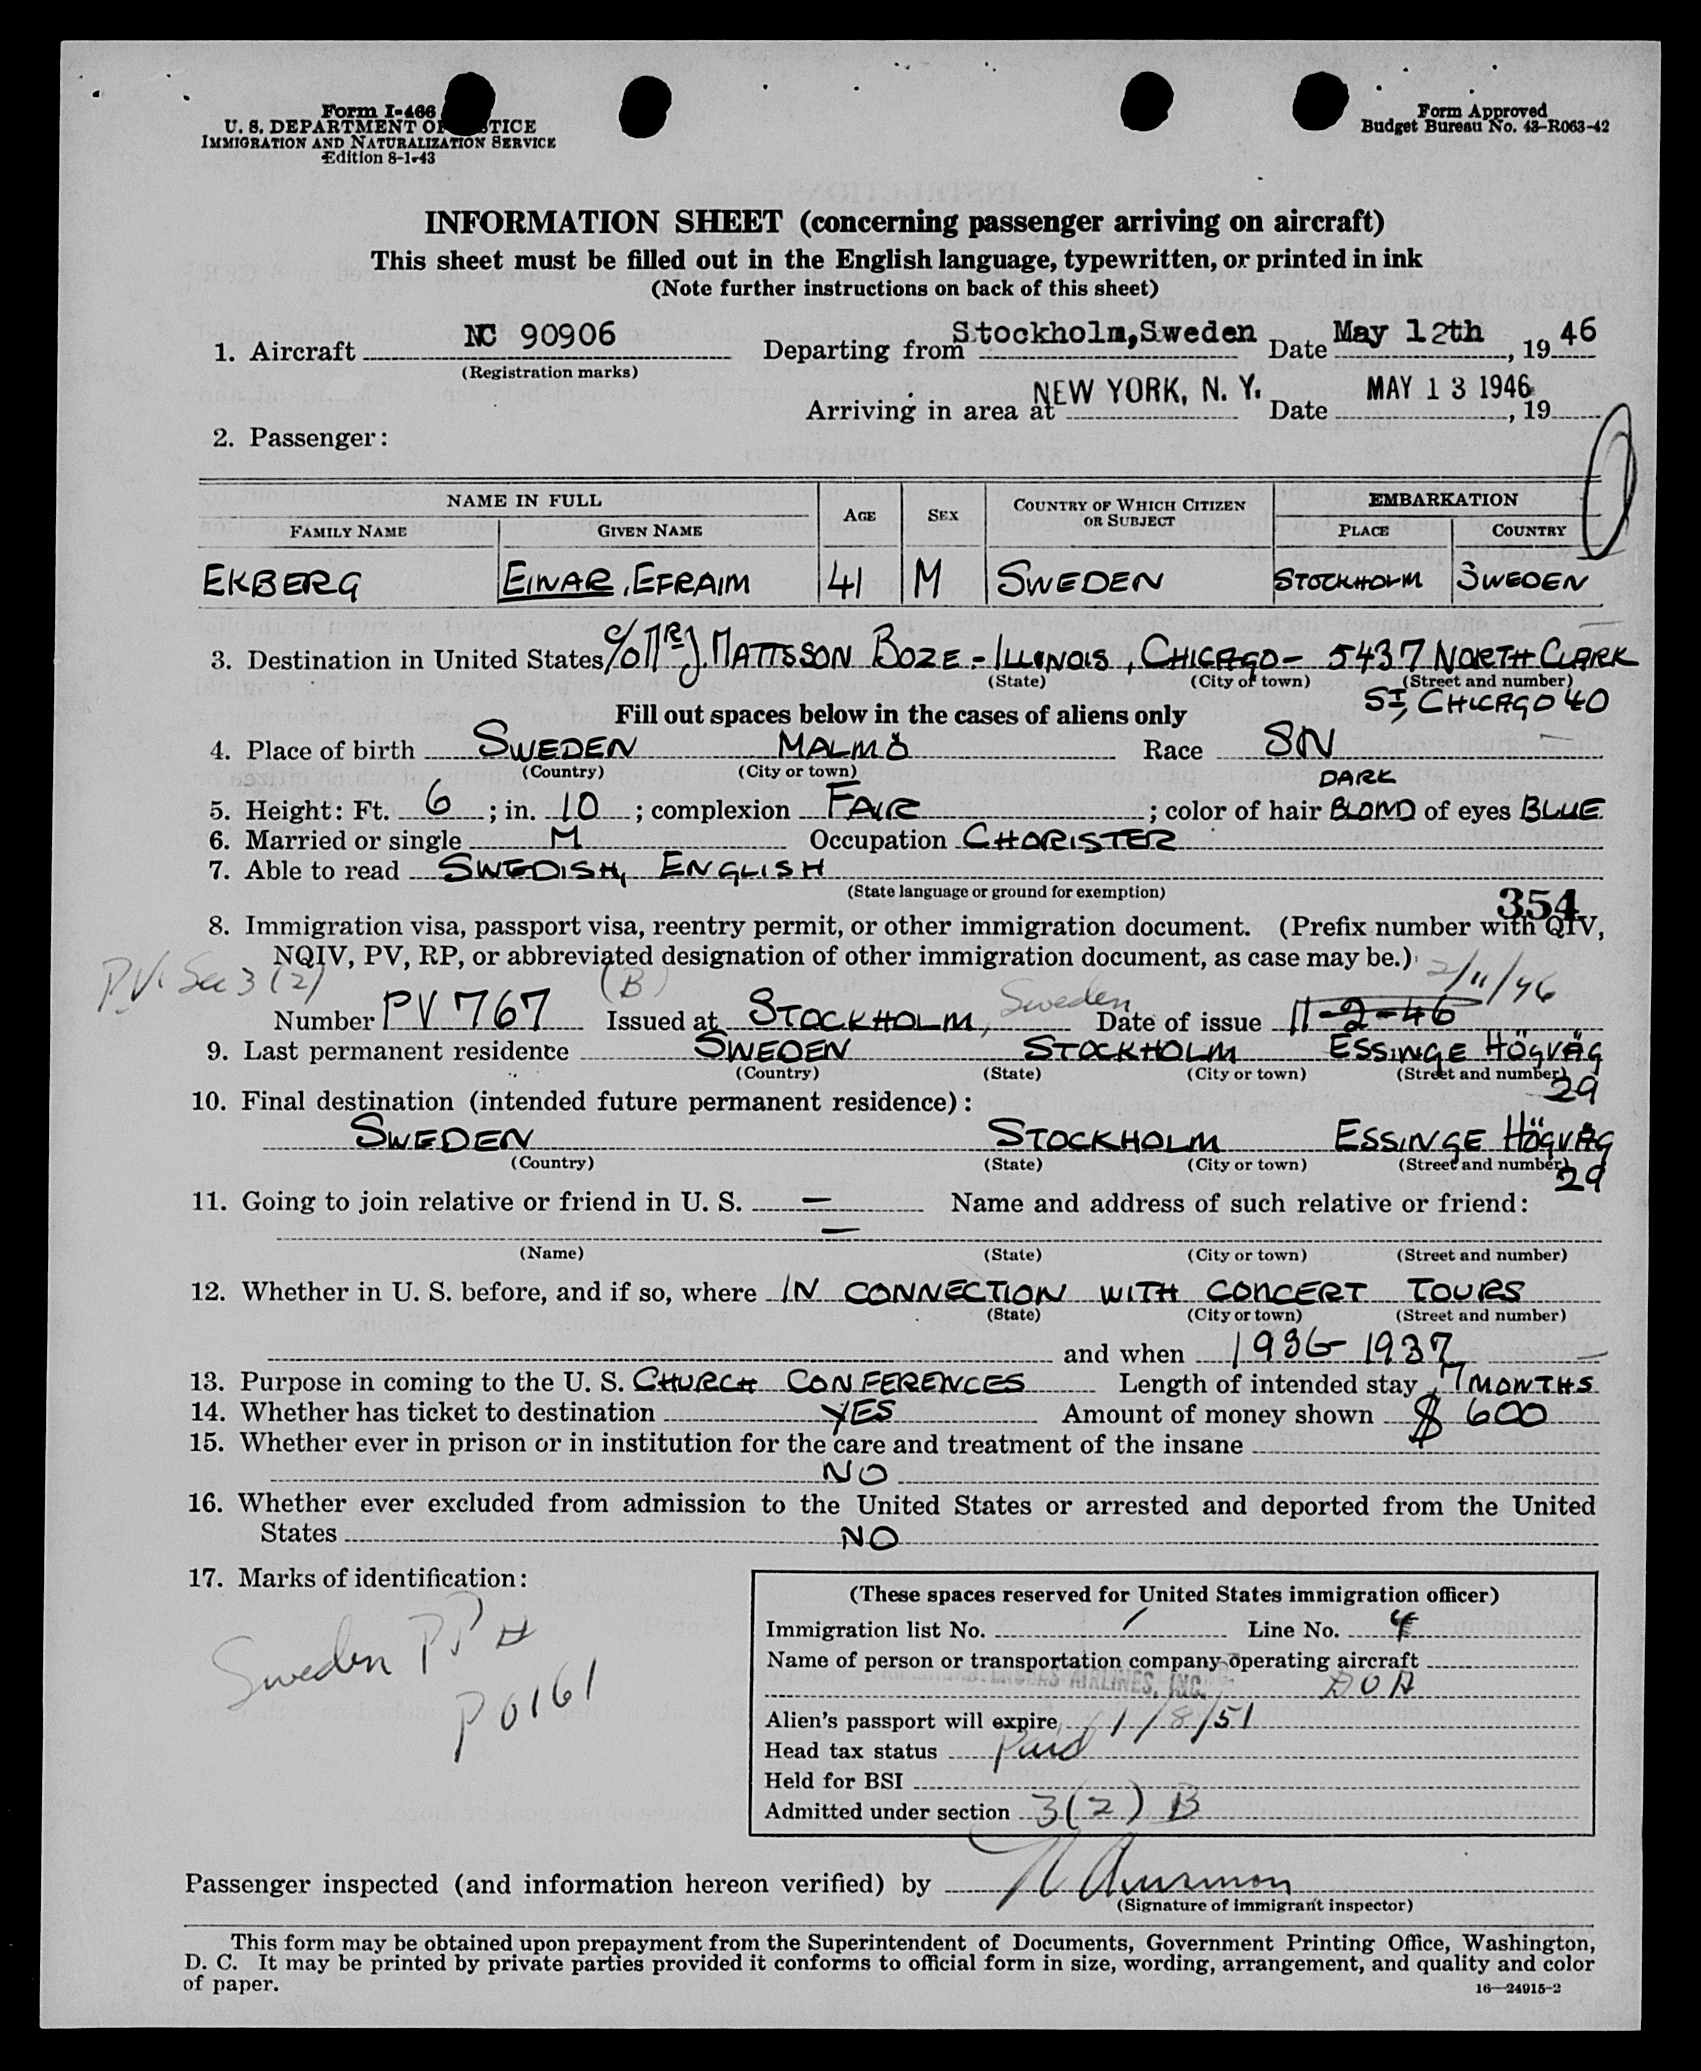 Form I-466
U. S. DEPARTMENT OF JUSTICE
IMMIGRATION AND NATURALIZATION SERVICE
Edition 8-1-43
Form Approved
Budget Bureau No. 43-R063-42
INFORMATION SHEET (concerning passenger arriving on aircraft)
This sheet must be filled out in the English language, typewritten, or printed in ink
(Note further instructions on back of this sheet)
1. Aircraft NC 90906 Departing from Stockholm,Sweden Date May 12th, 19 46
(Registration marks)
Arriving in area at NEW YORK, N. Y. Date MAY 13 1946, 19
2. Passenger:
NAME IN FULL AGE SEX COUNTRY OF WHICH CITIZEN OR SUBJECT EMBARKATION
FAMILY NAME GIVEN NAME PLACE COUNTRY
EKBERG EINAR, EFRAIM 41 M SWEDEN STOCKHOLM SWEDEN
3. Destination in United States c/o MR J. MATTSSON BOZE - ILLINOIS, CHICAGO - 5437 NORTH CLARK
(State) (City or town) (Street and number)
ST, CHICAGO 40
Fill out spaces below in the cases of aliens only
4. Place of birth SWEDEN MALMÖ Race SN
(Country) (City or town)
DARK
5. Height: Ft. 6; in. 10; complexion FAIR; color of hair BLOND of eyes BLUE
6. Married or single M Occupation CHORISTER
7. Able to read SWEDISH, ENGLISH
(State language or ground for exemption)
354
8. Immigration visa, passport visa, reentry permit, or other immigration document. (Prefix number with QIV,
NQIV, PV, RP, or abbreviated designation of other immigration document, as case may be.)
P.V. Sec 3 (2) (B) 2/11/46
Number PV 767 Issued at STOCKHOLM, Sweden Date of issue 11-2-46
9. Last permanent residence SWEDEN STOCKHOLM ESSINGE HÖGVÄG
(Country) (State) (City or town) (Street and number)
29
10. Final destination (intended future permanent residence):
SWEDEN STOCKHOLM ESSINGE HÖGVÄG
(Country) (State) (City or town) (Street and number)
29
11. Going to join relative or friend in U. S. — Name and address of such relative or friend:
—
(Name) (State) (City or town) (Street and number)
12. Whether in U. S. before, and if so, where IN CONNECTION WITH CONCERT TOURS
(State) (City or town) (Street and number)
and when 1936-1937
13. Purpose in coming to the U. S. CHURCH CONFERENCES Length of intended stay 7 MONTHS
14. Whether has ticket to destination YES Amount of money shown $ 600
15. Whether ever in prison or in institution for the care and treatment of the insane
NO
16. Whether ever excluded from admission to the United States or arrested and deported from the United
States NO
17. Marks of identification:
Sweden PP #
P0161
(These spaces reserved for United States immigration officer)
Immigration list No. 1 Line No. 4
Name of person or transportation company operating aircraft
AIRLINES, INC.
Alien's passport will expire 1/8/51
Head tax status Paid
Held for BSI
Admitted under section 3(2) B
Passenger inspected (and information hereon verified) by
(Signature of immigrant inspector)
This form may be obtained upon prepayment from the Superintendent of Documents, Government Printing Office, Washington,
D. C. It may be printed by private parties provided it conforms to official form in size, wording, arrangement, and quality and color
of paper.
16—24915-2